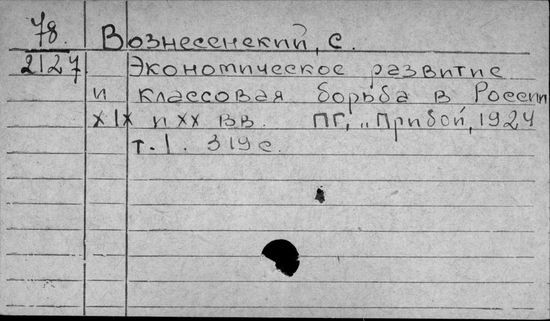 78. Вознесенский, С.
2127 Экономическое развитие
и классовая борьба в России
XIX и XX вв. ПГ, „Прибой, 1924
т. 1. 319 с.